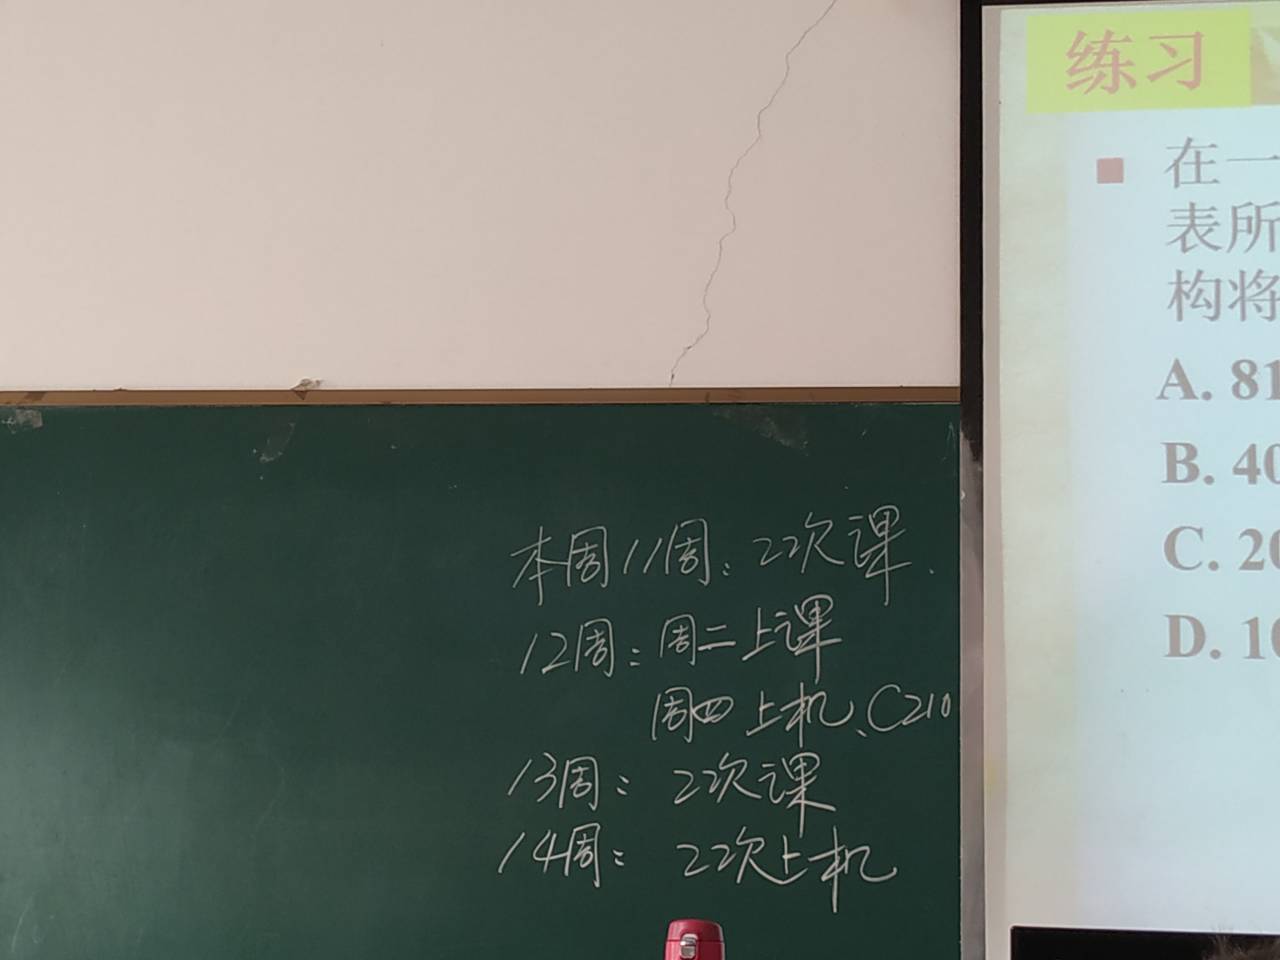 本周11周：2次课.
12周：周二上课
周四上机、C210
13周：2次课
14周：2次上机
练习
在一
表所
构将
A. 81
B. 40
C. 20
D. 10